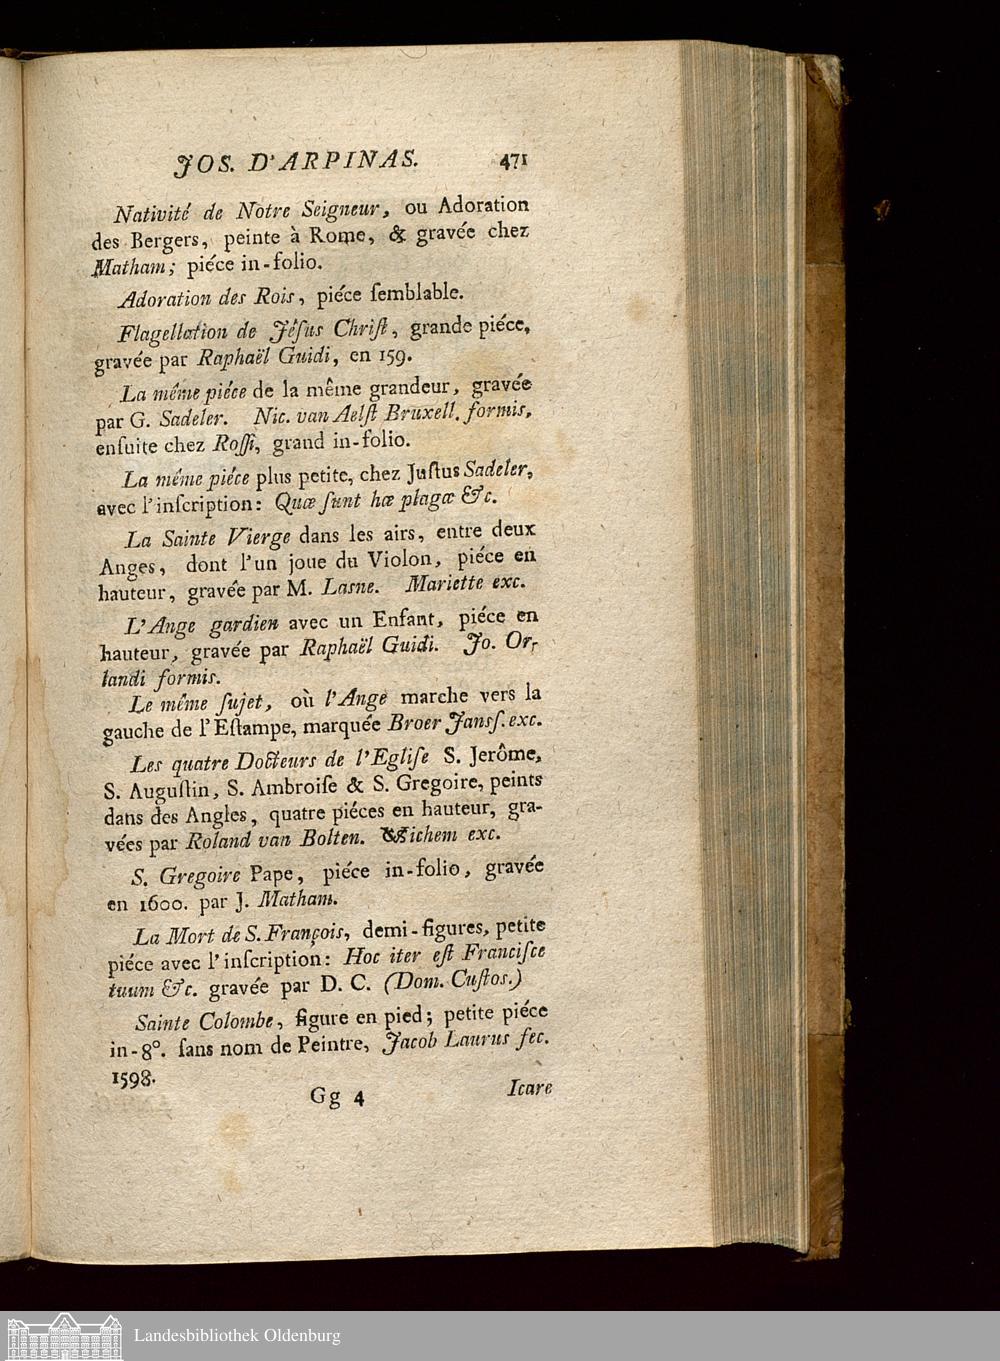 JOS. D'ARPINAS. 471
Nativité de Notre Seigneur, ou Adoration
des Bergers, peinte à Rome, & gravée chez
Matham; piéce in-folio.
Adoration des Rois, piéce ſemblable.
Flagellation de Jéſus Chriſt, grande piéce,
gravée par Raphaël Guidi, en 159.
La même piéce de la même grandeur, gravée
par G. Sadeler. Nic. van Aelſt Bruxell. formis,
enſuite chez Roſſi, grand in-folio.
La même piéce plus petite, chez Juſtus Sadeler,
avec l'inſcription: Quæ ſunt hæ plagæ &c.
La Sainte Vierge dans les airs, entre deux
Anges, dont l'un joue du Violon, piéce en
hauteur, gravée par M. Lasne. Mariette exc.
L'Ange gardien avec un Enfant, piéce en
hauteur, gravée par Raphaël Guidi. Jo. Or-
landi formis.
Le même ſujet, où l'Ange marche vers la
gauche de l'Eſtampe, marquée Broer Janſſ. exc.
Les quatre Docteurs de l'Egliſe S. Jerôme,
S. Auguſtin, S. Ambroiſe & S. Gregoire, peints
dans des Angles, quatre piéces en hauteur, gra-
vées par Roland van Bolten. ichem exc.
S. Gregoire Pape, piéce in-folio, gravée
en 1600. par J. Matham.
La Mort de S. François, demi-figures, petite
piéce avec l'inſcription: Hoc iter eſt Franciſce
tuum &c. gravée par D. C. (Dom. Cuſtos.)
Sainte Colombe, figure en pied; petite piéce
in-8°. ſans nom de Peintre, Jacob Laurus fec.
1598.
Gg 4 Icare
Landesbibliothek Oldenburg